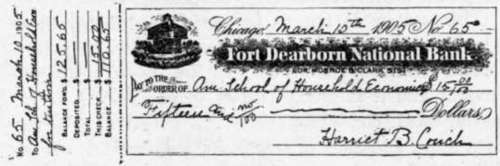 No. 65 March 10, 1905
To Am. Sch. of Household Econ.
for Tuition
BALANCE FOR'D. $ 125.65
DEPOSITED, $
TOTAL, $
THIS CHECK, $ 15.02
BALANCE, $ 110.65
Chicago, March 10th 1905 No 65
Fort Dearborn National Bank
COR. MONROE & CLARK STS.
Pay TO THE ORDER OF Am. School of Household Economics $15 00/00
Fifteen and no/100 Dollars
Harriet B. Couch